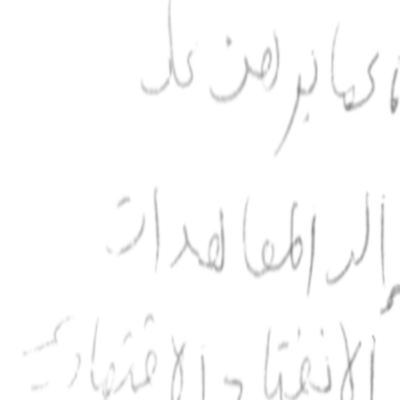 كما يبرهن على
إلى المعاهدات
الانفتاح الاقتصادي